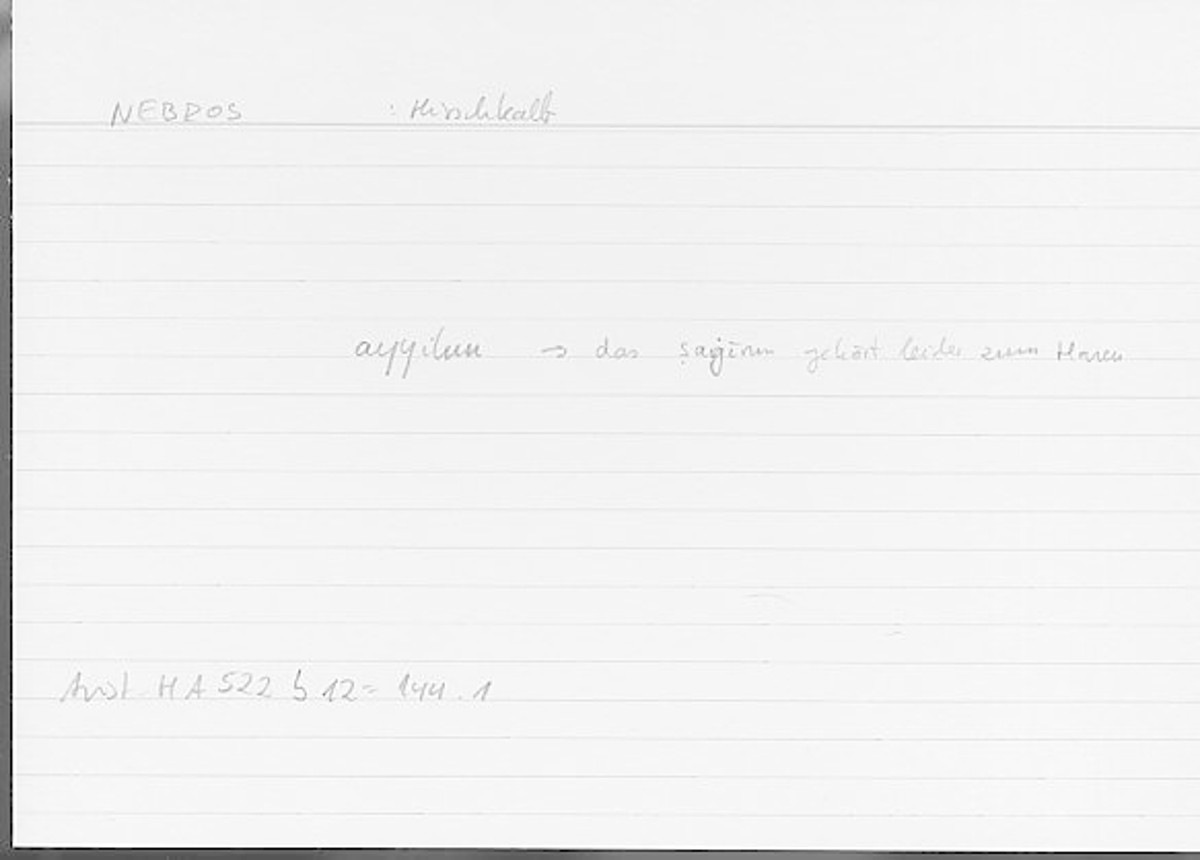 NEBROS : Hirschkalb
ayyilun → das ṣaġīrun gehört leider zum
Arist. HA 522 b 12 = 144.1